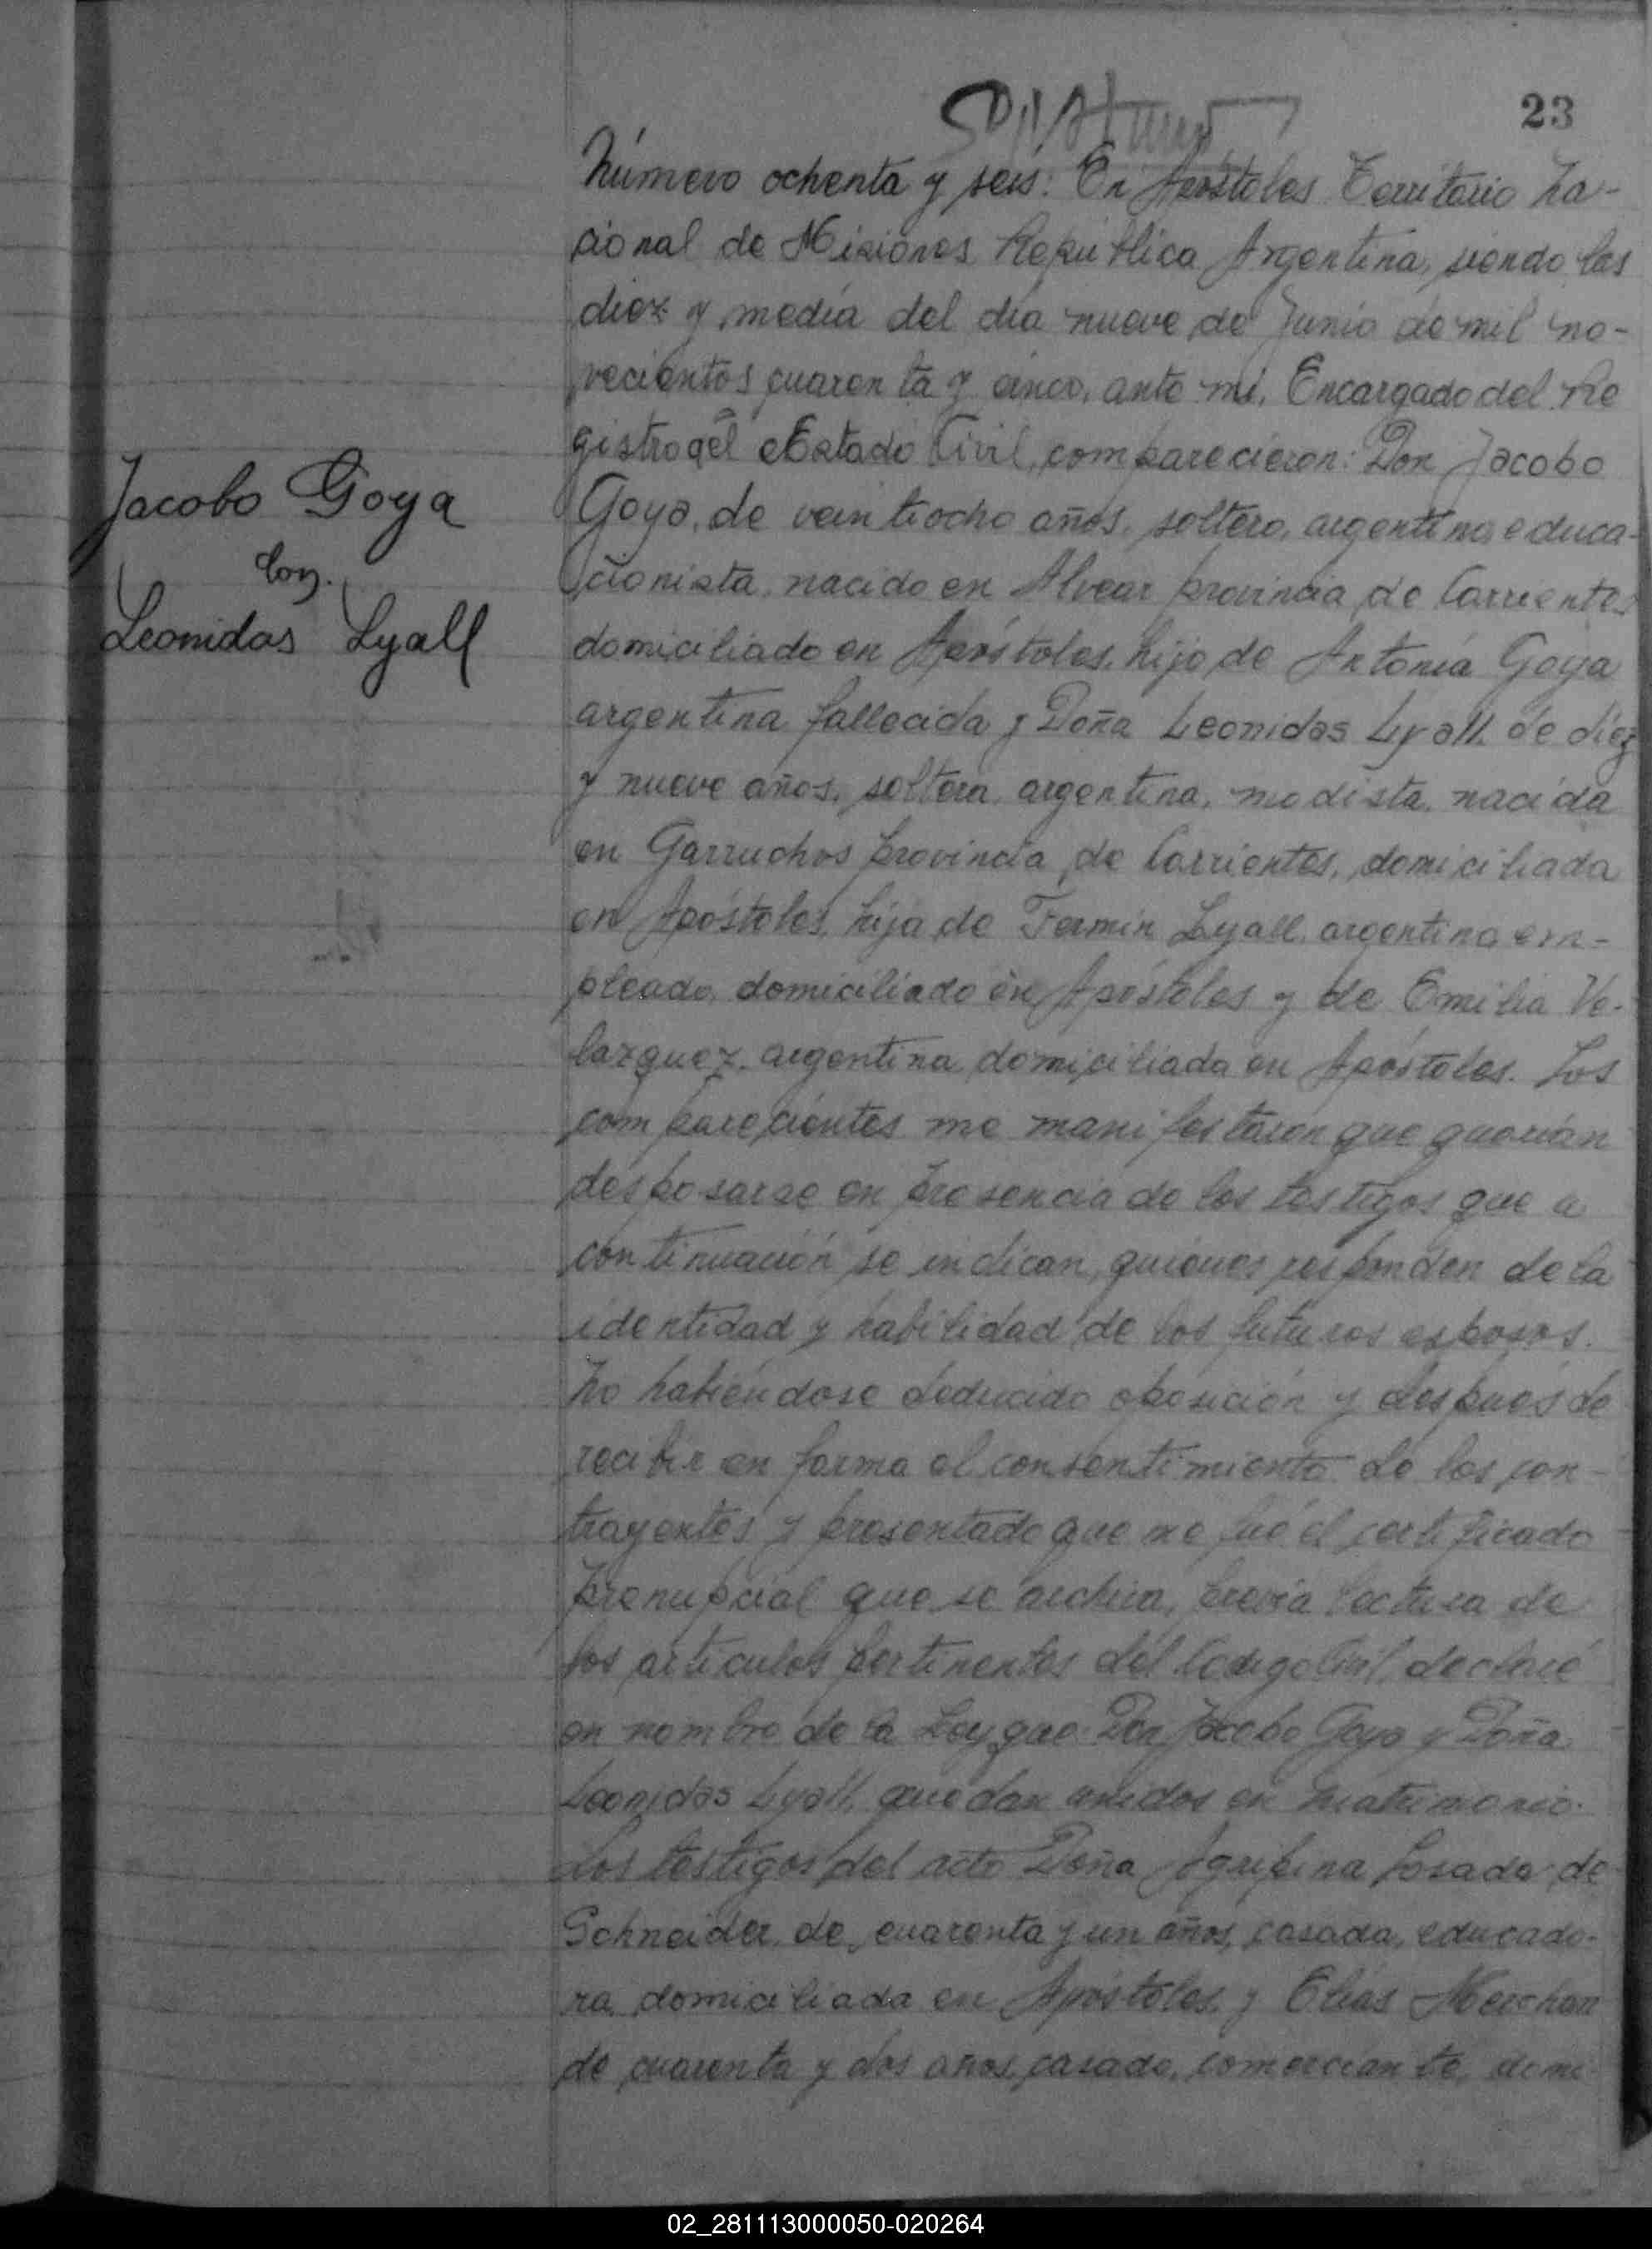 23
Número ochenta y seis: En Apóstoles Territorio Na-
cional de Misiones República Argentina, siendo las
diez y media del día nueve de Junio de mil no-
vecientos cuarenta y cinco, ante mi, Encargado del Re
gistro del Estado Civil, comparecieron: Don Jacobo
Goya, de veintiocho años, soltero, argentino, educa-
cionista, nacido en Alvear provincia de Corrientes
domiciliado en Apóstoles, hijo de Antonia Goya
argentina fallecida y Doña Leonidas Lyall, de diez
y nueve años, soltera, argentina, modista, nacida
en Garruchos provincia de Corrientes, domiciliada
en Apóstoles, hija de Fermín Lyall, argentino em-
pleado, domiciliado en Apóstoles y de Emilia Ve-
lazquez, argentina domiciliada en Apóstoles. Los
comparecientes me manifestaron que querían
desposarse en presencia de los testigos que a
continuación se indican, quienes responden de la
identidad y habilidad de los futuros esposos.
No habiéndose deducido oposición y después de
recibir en forma el consentimiento de los con-
trayentes y presentado que me fué el certificado
prenupcial que se archiva, previa lectura de
los artículos pertinentes del Codigo Civil, declaré
en nombre de la Ley que Don Jacobo Goya y Doña
Leonidas Lyall, quedan unidos en matrimonio.
Los testigos del acto Doña Agripina Losada de
Schneider, de cuarenta y un años, casada, educado-
ra, domiciliada en Apóstoles y Elías Merchan
de cuarenta y dos años, casado, comerciante, domi
Jacobo Goya
con
Leonidas Lyall
02_281113000050-020264